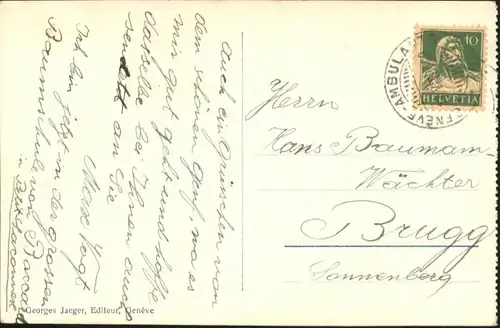 Auch ein Grüsschen von
dem schönen Genf, wo es
mir gut geht und hoffe
dasselbe bei Ihnen auch
sendet an Sie
Max Vogt
Ich bin jetzt in der grossen
Baumschule von
in Petit Saconnex
Georges Jaeger, Editeur, Genève
AMBULA
GENÈVE
10
HELVETIA
Herrn
Hans Baumann-
Wächter
Brugg
Sonnenberg